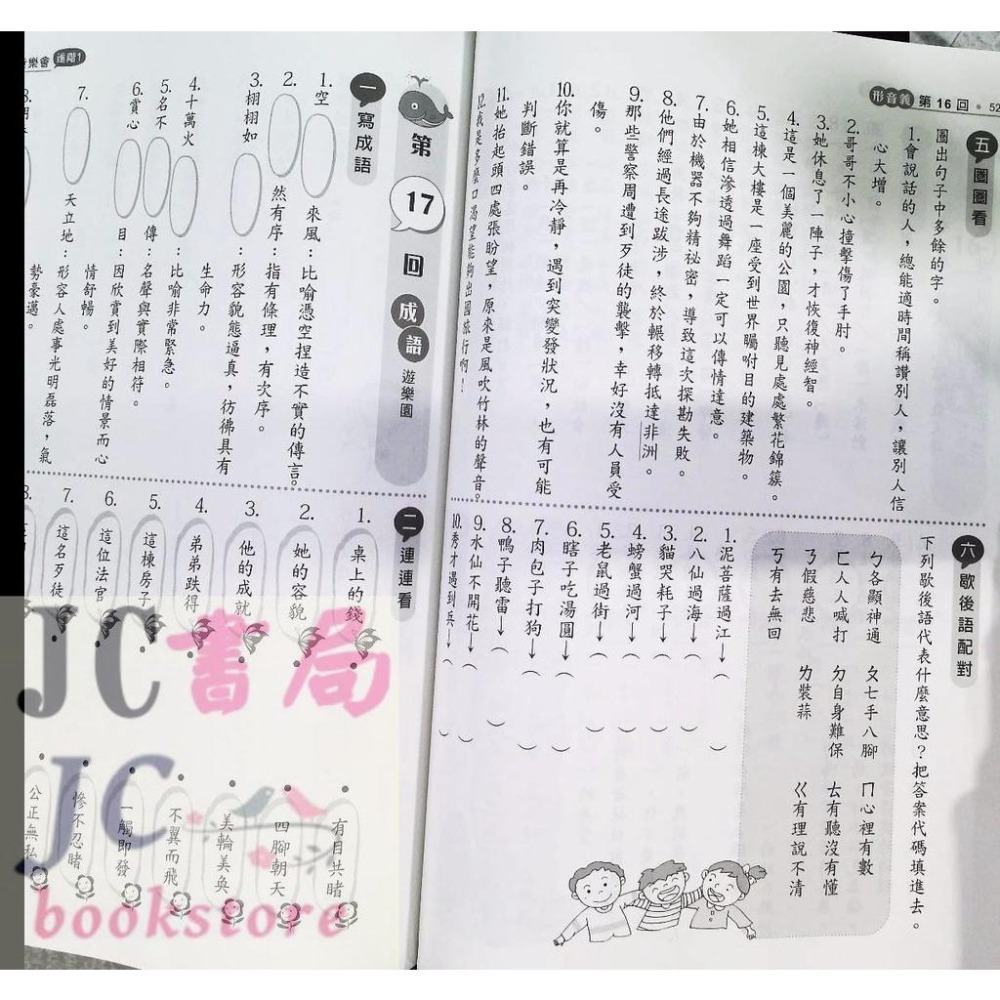 形音義 第16回 • 52
五 圈圈看
圈出句子中多餘的字。
1. 會說話的人，總能適時間稱讚別人，讓別人信
心大增。
2. 哥哥不小心撞擊傷了手肘。
3. 她休息了一陣子，才恢復神經智。
4. 這是一個美麗的公園，只聽見處處繁花錦簇。
5. 這棟大樓是一座受到世界矚咐目的建築物。
6. 她相信滲透過舞蹈一定可以傳情達意。
7. 由於機器不夠精祕密，導致這次探勘失敗。
8. 他們經過長途跋涉，終於輾移轉抵達非洲。
9. 那些警察周遭到歹徒的襲擊，幸好沒有人員受
傷。
10. 你就算是再冷靜，遇到突變發狀況，也有可能
判斷錯誤。
11. 她抬起頭四處張盼望，原來是風吹竹林的聲音。
12. 我是多麼口渴望能夠出國旅行啊！
六 歇後語配對
下列歇後語代表什麼意思？把答案代碼填進去。
ㄅ各顯神通 ㄆ七手八腳 ㄇ心裡有數
ㄈ人人喊打 ㄉ自身難保 ㄊ有聽沒有懂
ㄋ假慈悲 ㄌ裝蒜 ㄍ有理說不清
ㄎ有去無回
1. 泥菩薩過江→（ ）
2. 八仙過海→（ ）
3. 貓哭耗子→（ ）
4. 螃蟹過河→（ ）
5. 老鼠過街→（ ）
6. 瞎子吃湯圓→（ ）
7. 肉包子打狗→（ ）
8. 鴨子聽雷→（ ）
9. 水仙不開花→（ ）
10. 秀才遇到兵→（ ）
樂會 進階1
第17回 成語遊樂園
一 寫成語
1. 空 來風：比喻憑空捏造不實的傳言。
2. 然有序：指有條理，有次序。
3. 栩栩如 ：形容貌態逼真，彷彿具有
生命力。
4. 十萬火 ：比喻非常緊急。
5. 名不 傳：名聲與實際相符。
6. 賞心 目：因欣賞到美好的情景而心
情舒暢。
7. 天立地：形容人處事光明磊落，氣
勢豪邁。
8.
二 連連看
1. 桌上的錢
2. 她的容貌
3. 他的成就
4. 弟弟跌得
5. 這棟房子
6. 這位法官
7. 這名歹徒
8.
有目共睹
四腳朝天
美輪美奐
不翼而飛
一觸即發
慘不忍睹
公正無私
JC書局
JC
bookstore